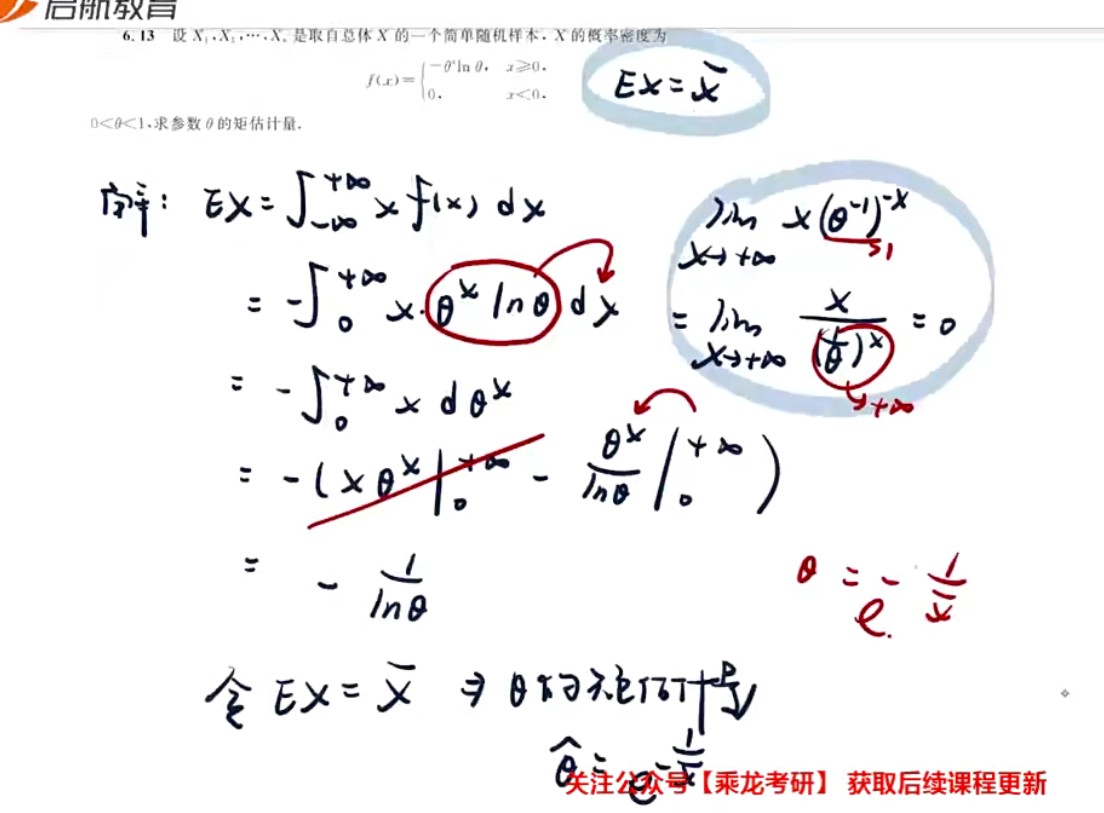 启航教育
6.13 设 X₁,X₂,…,Xₙ 是取自总体 X 的一个简单随机样本,X 的概率密度为
f(x)={-θˣln θ, x≥0,
0, x<0.
EX=x̄
0<θ<1,求参数 θ 的矩估计量.
解: EX=∫_{-∞}^{+∞} x f(x) dx
=-∫_0^{+∞} x·θˣ lnθ dx
=-∫_0^{+∞} x dθˣ
=-(xθˣ|_0^{+∞} - θˣ/lnθ|_0^{+∞})
= -1/lnθ
lim_{x→+∞} x(θ⁻¹)⁻ˣ
>1
=lim_{x→+∞} x/(1/θ)ˣ =0
→+∞
θ = e^{-1/x̄}
令 EX=x̄ ⇒ θ的矩估计量
θ̂=e^{-1/x̄}
关注公众号【乘龙考研】 获取后续课程更新